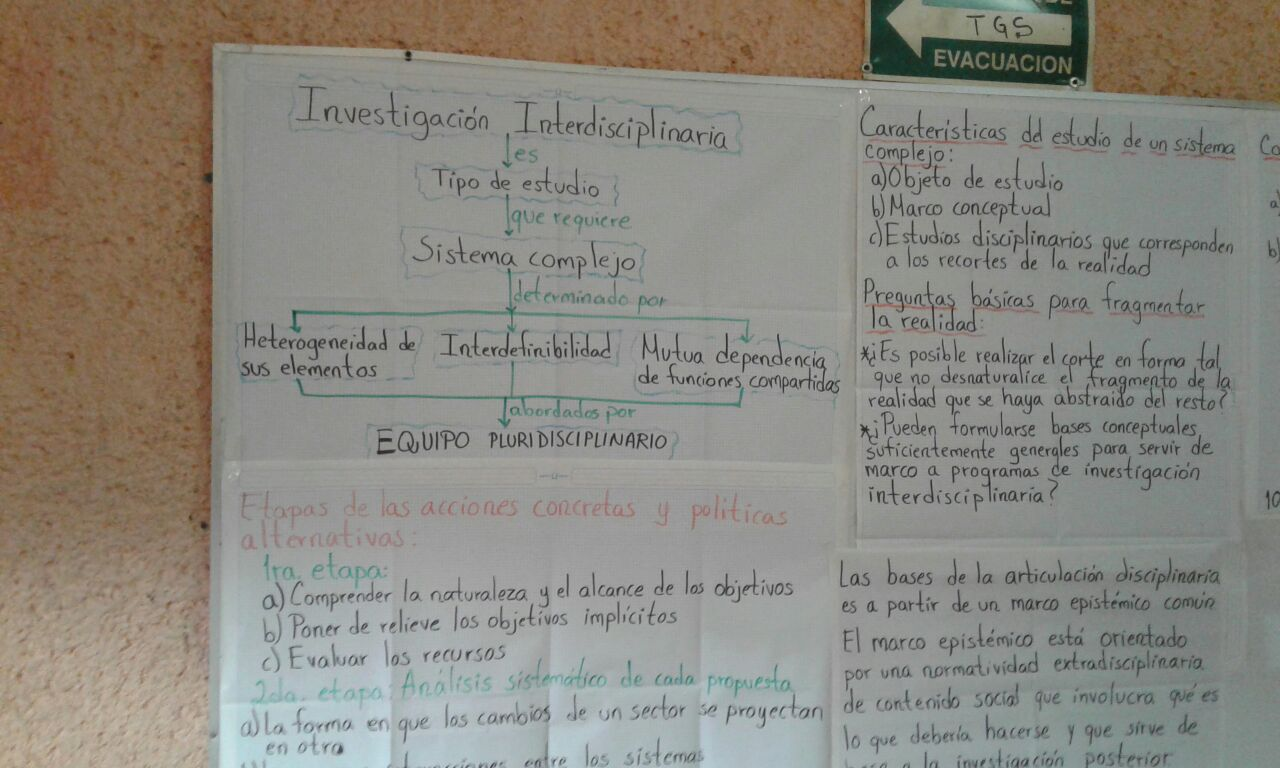 TGS
EVACUACION
Investigación Interdisciplinaria
es
Tipo de estudio
que requiere
Sistema complejo
determinado por
Heterogeneidad de
sus elementos
Interdefinibilidad
Mutua dependencia
de funciones compartidas
abordados por
EQUIPO PLURIDISCIPLINARIO
Etapas de las acciones concretas y politicas
alternativas:
1ra. etapa:
a) Comprender la naturaleza y el alcance de los objetivos
b) Poner de relieve los objetivos implícitos
c) Evaluar los recursos
2da. etapa: Análisis sistemático de cada propuesta
a) La forma en que los cambios de un sector se proyectan
en otro
entre los sistemas
Características del estudio de un sistema
complejo:
a) Objeto de estudio
b) Marco conceptual
c) Estudios disciplinarios que corresponden
a los recortes de la realidad
Preguntas básicas para fragmentar
la realidad:
*¿Es posible realizar el corte en forma tal
que no desnaturalice el fragmento de la
realidad que se haya abstraido del resto?
*¿Pueden formularse bases conceptuales
suficientemente generales para servir de
marco a programas de investigación
interdisciplinaria?
Las bases de la articulación disciplinaria
es a partir de un marco epistémico común
El marco epistémico está orientado
por una normatividad extradisciplinaria
de contenido social que involucra qué es
lo que debería hacerse y que sirve de
a la investigación posterior
Co
a)
b)
10